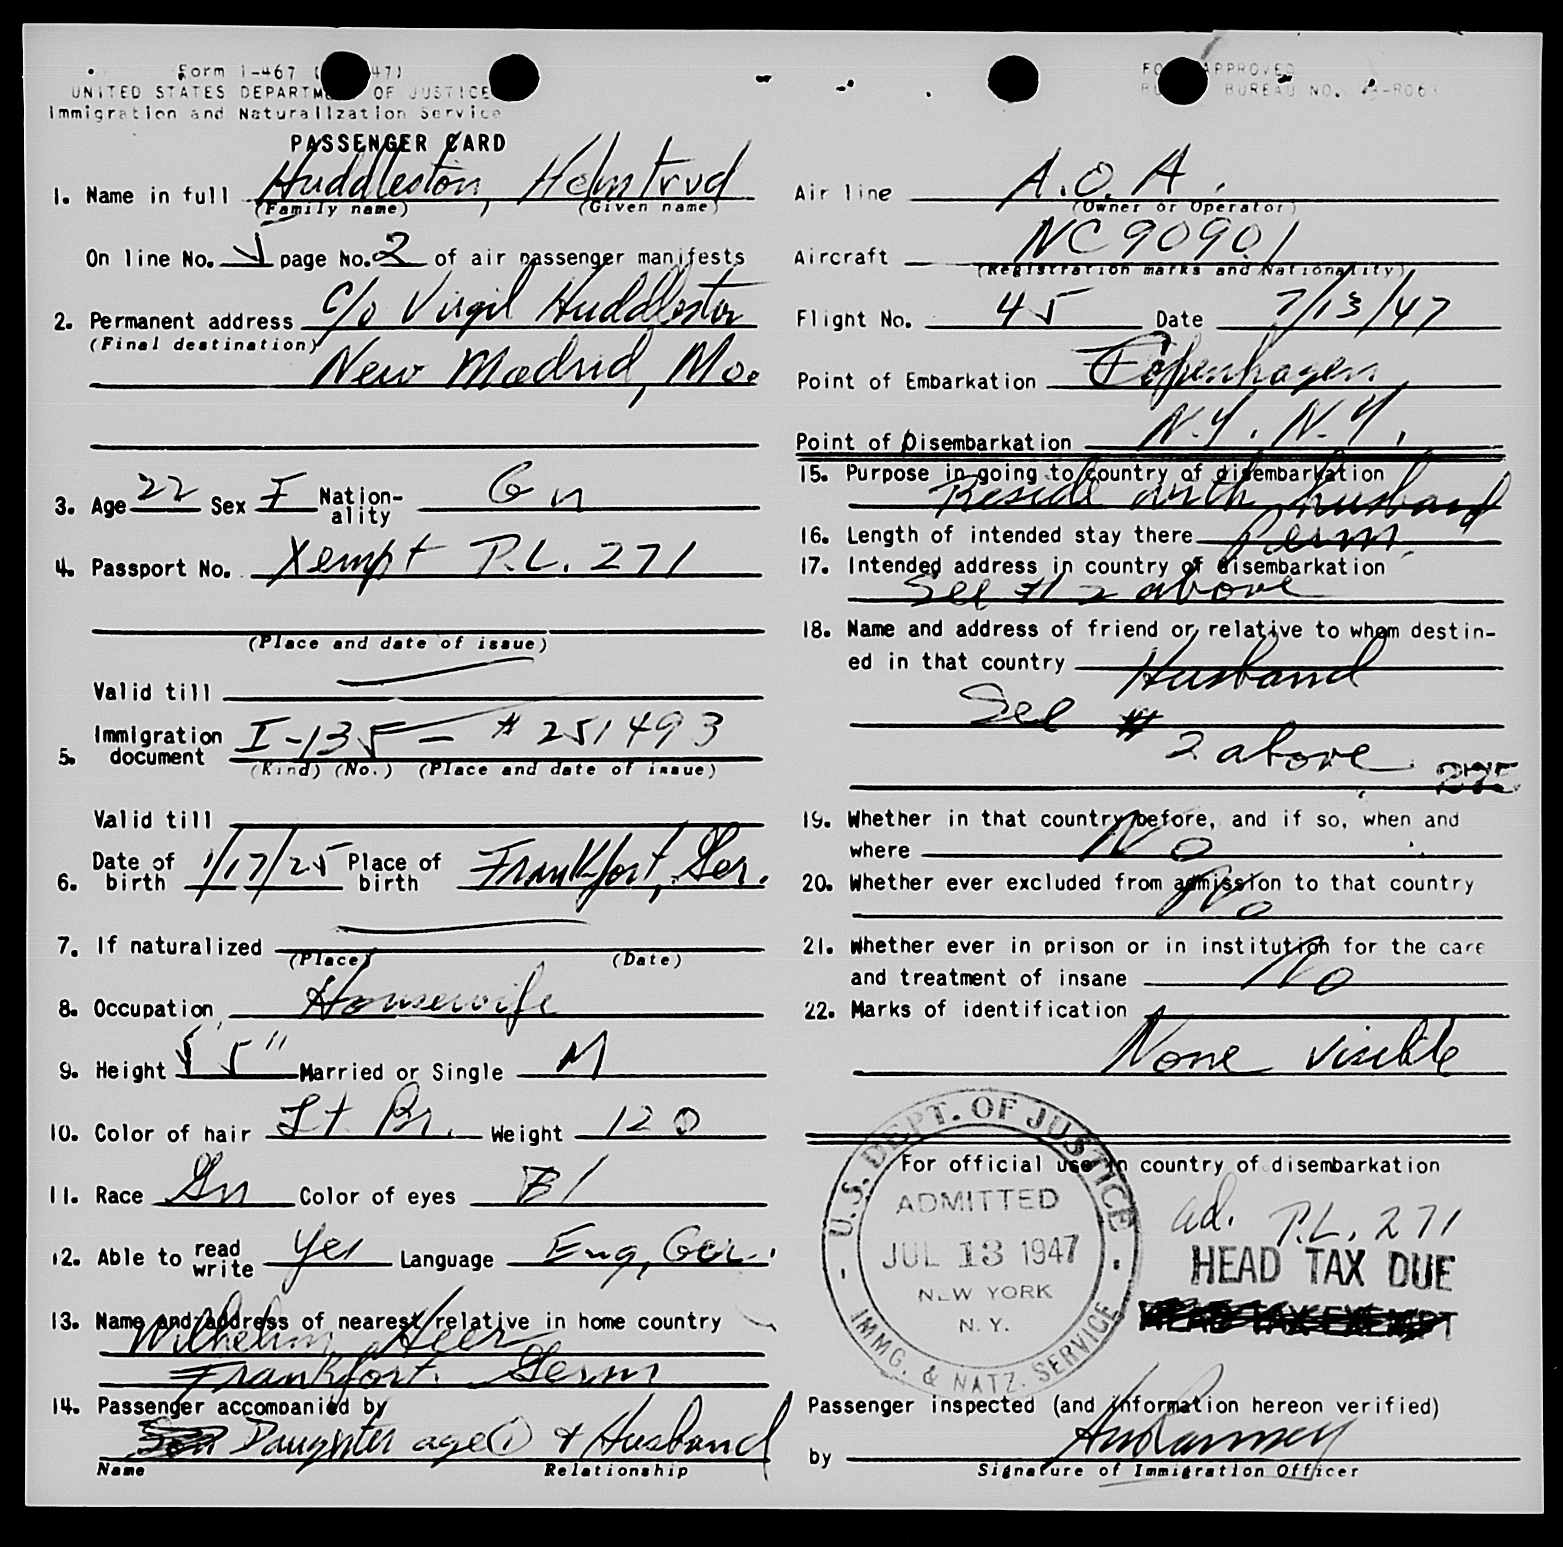 Form I-467 ( 47)
UNITED STATES DEPARTM OF JUSTICE
Immigration and Naturalization Service
PASSENGER CARD
1. Name in full Huddleston, Helmtrud
(Family name) (Given name)
On line No. page No. 2 of air passenger manifests
2. Permanent address c/o Virgil Huddleston
(Final destination)
New Madrid, Mo.
3. Age 22 Sex F Nationality
4. Passport No. Xempt P.L. 271
(Place and date of issue)
Valid till
5. Immigration document I-135 - #251493
(Kind) (No.) (Place and date of issue)
Valid till
6. Date of birth 1/17/25 Place of birth Frankfort, Ger.
7. If naturalized
(Place) (Date)
8. Occupation Housewife
9. Height 5' 5" Married or Single M
10. Color of hair Lt. Br. Weight 120
11. Race Color of eyes Bl
12. Able to read write Yes Language Eng, Ger.
13. Name and address of nearest relative in home country
Wilhelm Heer
Frankfort. Germ
14. Passenger accompanied by
Daughter age 1 + Husband
Name Relationship
FO APPROVED
BUREAU NO.
Air line A.O.A.
(Owner or Operator)
Aircraft NC90901
(Registration marks and Nationality)
Flight No. 45 Date 7/13/47
Point of Embarkation Copenhagen
Point of Disembarkation N.Y. N.Y.
15. Purpose in going to country of disembarkation
Reside with husband
16. Length of intended stay there Perm.
17. Intended address in country of disembarkation
See #2 above
18. Name and address of friend or relative to whom destin-
ed in that country Husband
See #
2 above
19. Whether in that country before, and if so, when and
where No
20. Whether ever excluded from admission to that country
No
21. Whether ever in prison or in institution for the care
and treatment of insane No
22. Marks of identification
None visible
For official use in country of disembarkation
U.S. DEPT. OF JUSTICE
ADMITTED
JUL 13 1947
NEW YORK
N. Y.
IMMG. & NATZ. SERVICE
ad. P.L. 271
HEAD TAX DUE
HEAD TAX EXEMPT
Passenger inspected (and information hereon verified)
by
Signature of Immigration Officer